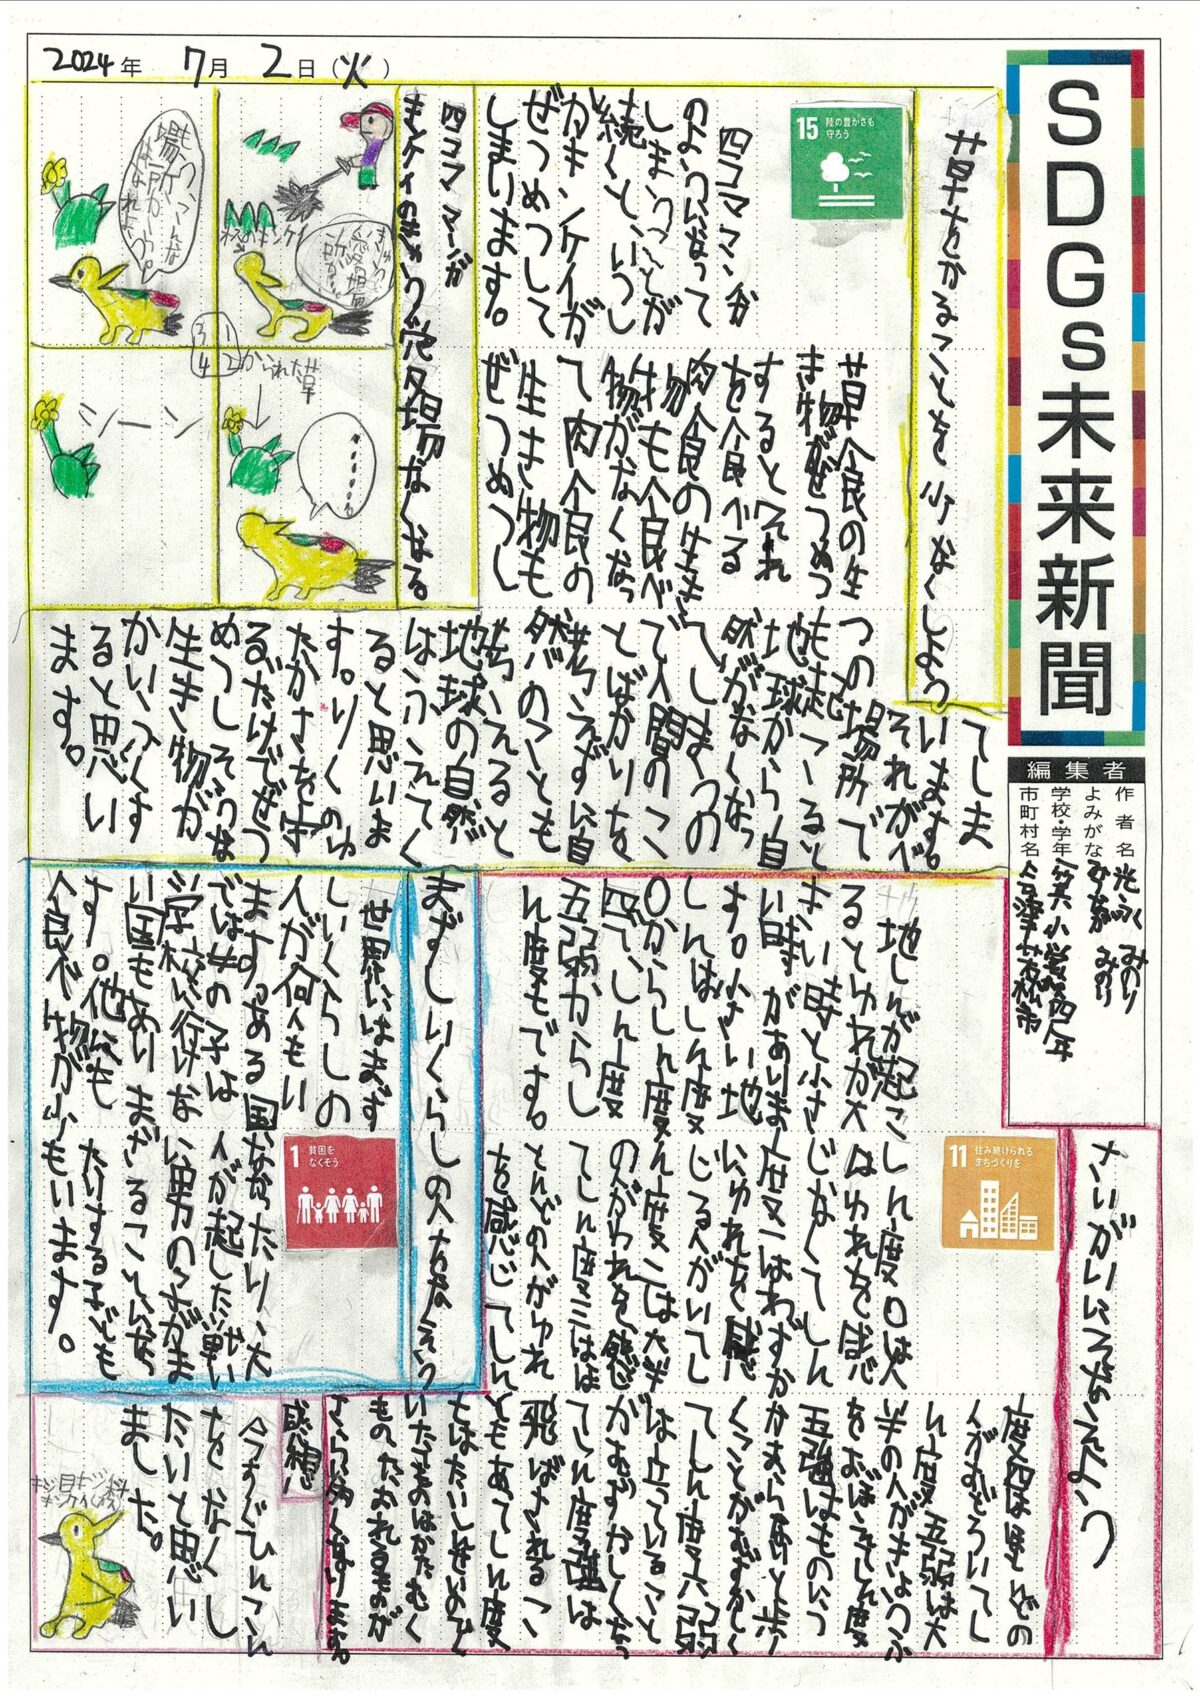 SDGs未来新聞
2024年 7月 2日(火)
編集者
作者名
よみがな
学校・学年
市町村名
みのり
みのり
一箕小学校四年
会津若松市
草をかることを少なくしよう
15 陸の豊かさも
守ろう
四コママンガ
のようになって
しまうことが
続くといつし
かキンケイが
ぜつめつして
しまいます。
草食の生
き物がぜつめつ
するとそれ
を食べる
肉食の生き
物も食べ
物がなくなっ
て肉食の
生き物も
ぜつめつし
てしま
います。
それがべ
つの場所で
も起こると
地球から自
然がなくなっ
てしまうの
で人間のこ
とばかりを
考えずに自
然のことも
考えると
地球の自然
はふえてく
ると思いま
す。りくのゆ
たかさを守
るだけでぜつ
めつしそうな
生き物が
かいふくす
ると思い
ます。
四コママンガ
キンケイのきゅうけい場なくなる。
1
2
3
4
かられた草
シーン
さいがいにそなえよう
11 住み続けられる
まちづくりを
地しんが起こ
るとゆれが大
きい時と小さ
い時がありま
す。小さい地
しんはしん度
0からしん度
四で、しん度
五弱からし
ん度もです。
しん度0は人
はゆれを感
じなくてしん
度一はわずか
にゆれを感
じる人がいてし
ん度二は大半
の人がゆれを感じ
てしん度三はほ
とんどの人がゆれ
を感じてしん
度四はほとんどの
人がおどろいてし
ん度五弱は大
半の人がきょうふ
をおぼえてしん度
五強はものにつ
かまらないと歩
くことがむずかしく
てしん度六弱
は立っていること
がむずかしくなっ
てしん度六強は
飛ばされるこ
ともあってしん度
まずしいくらしの人をすくおう
1 貧困を
なくそう
世界にはまず
しいくらしの
人が何人もい
ます。ある国
では女の子は
学校に行けな
い国もありま
す。他にも
食べ物が少
なかったり、大
人が起こした戦い
に男の子がま
きこまれることになっ
たりする子ども
もいます。
感想
今すぐひんこん
をなくし
たいと思い
ました。
キジ目キジ科